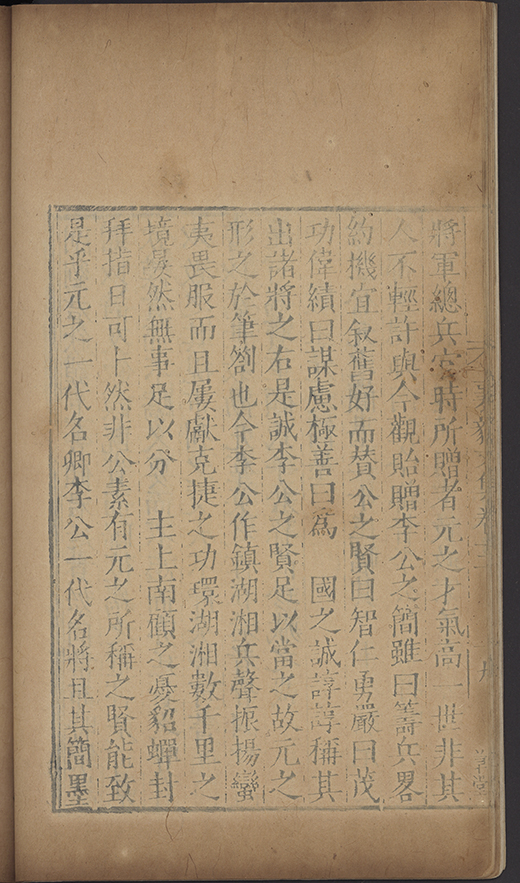 將軍總兵六時所贈者元之才氣高一世非其
人不輕許與今觀貽贈李公之簡雖曰籌兵畧
約機宜叙舊好而賛公之賢曰智仁勇嚴曰茂
功偉績曰謀慮極善曰為 國之誠諄諄稱其
出諸將之右是誠李公之賢足以當之故元之
形之於筆劄也今李公作鎮湖湘兵聲振揚蠻
夷畏服而且屢獻克捷之功環湖湘數千里之
境晏然無事足以分 主上南顧之憂貂蟬封
拜指日可卜然非公素有元之所稱之賢能致
是乎元之一代名卿李公一代名將且其簡墨